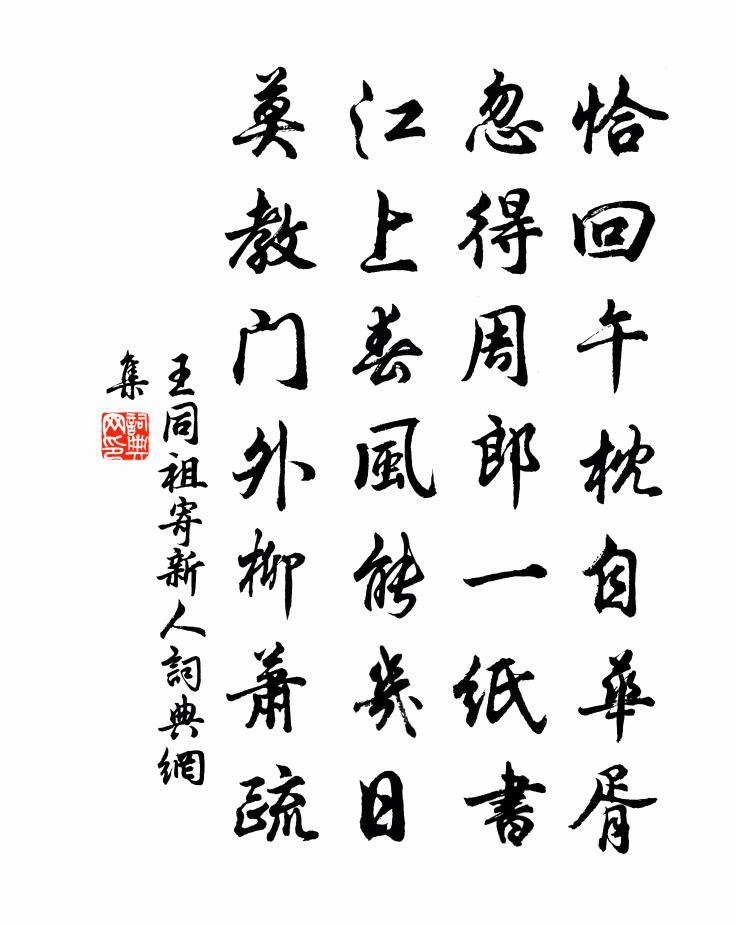 恰回午枕自華胥
忽得周郎一紙書
江上春風能幾日
莫教門外柳蕭疏
王同祖寄新人詞典網
集
詞典
网印